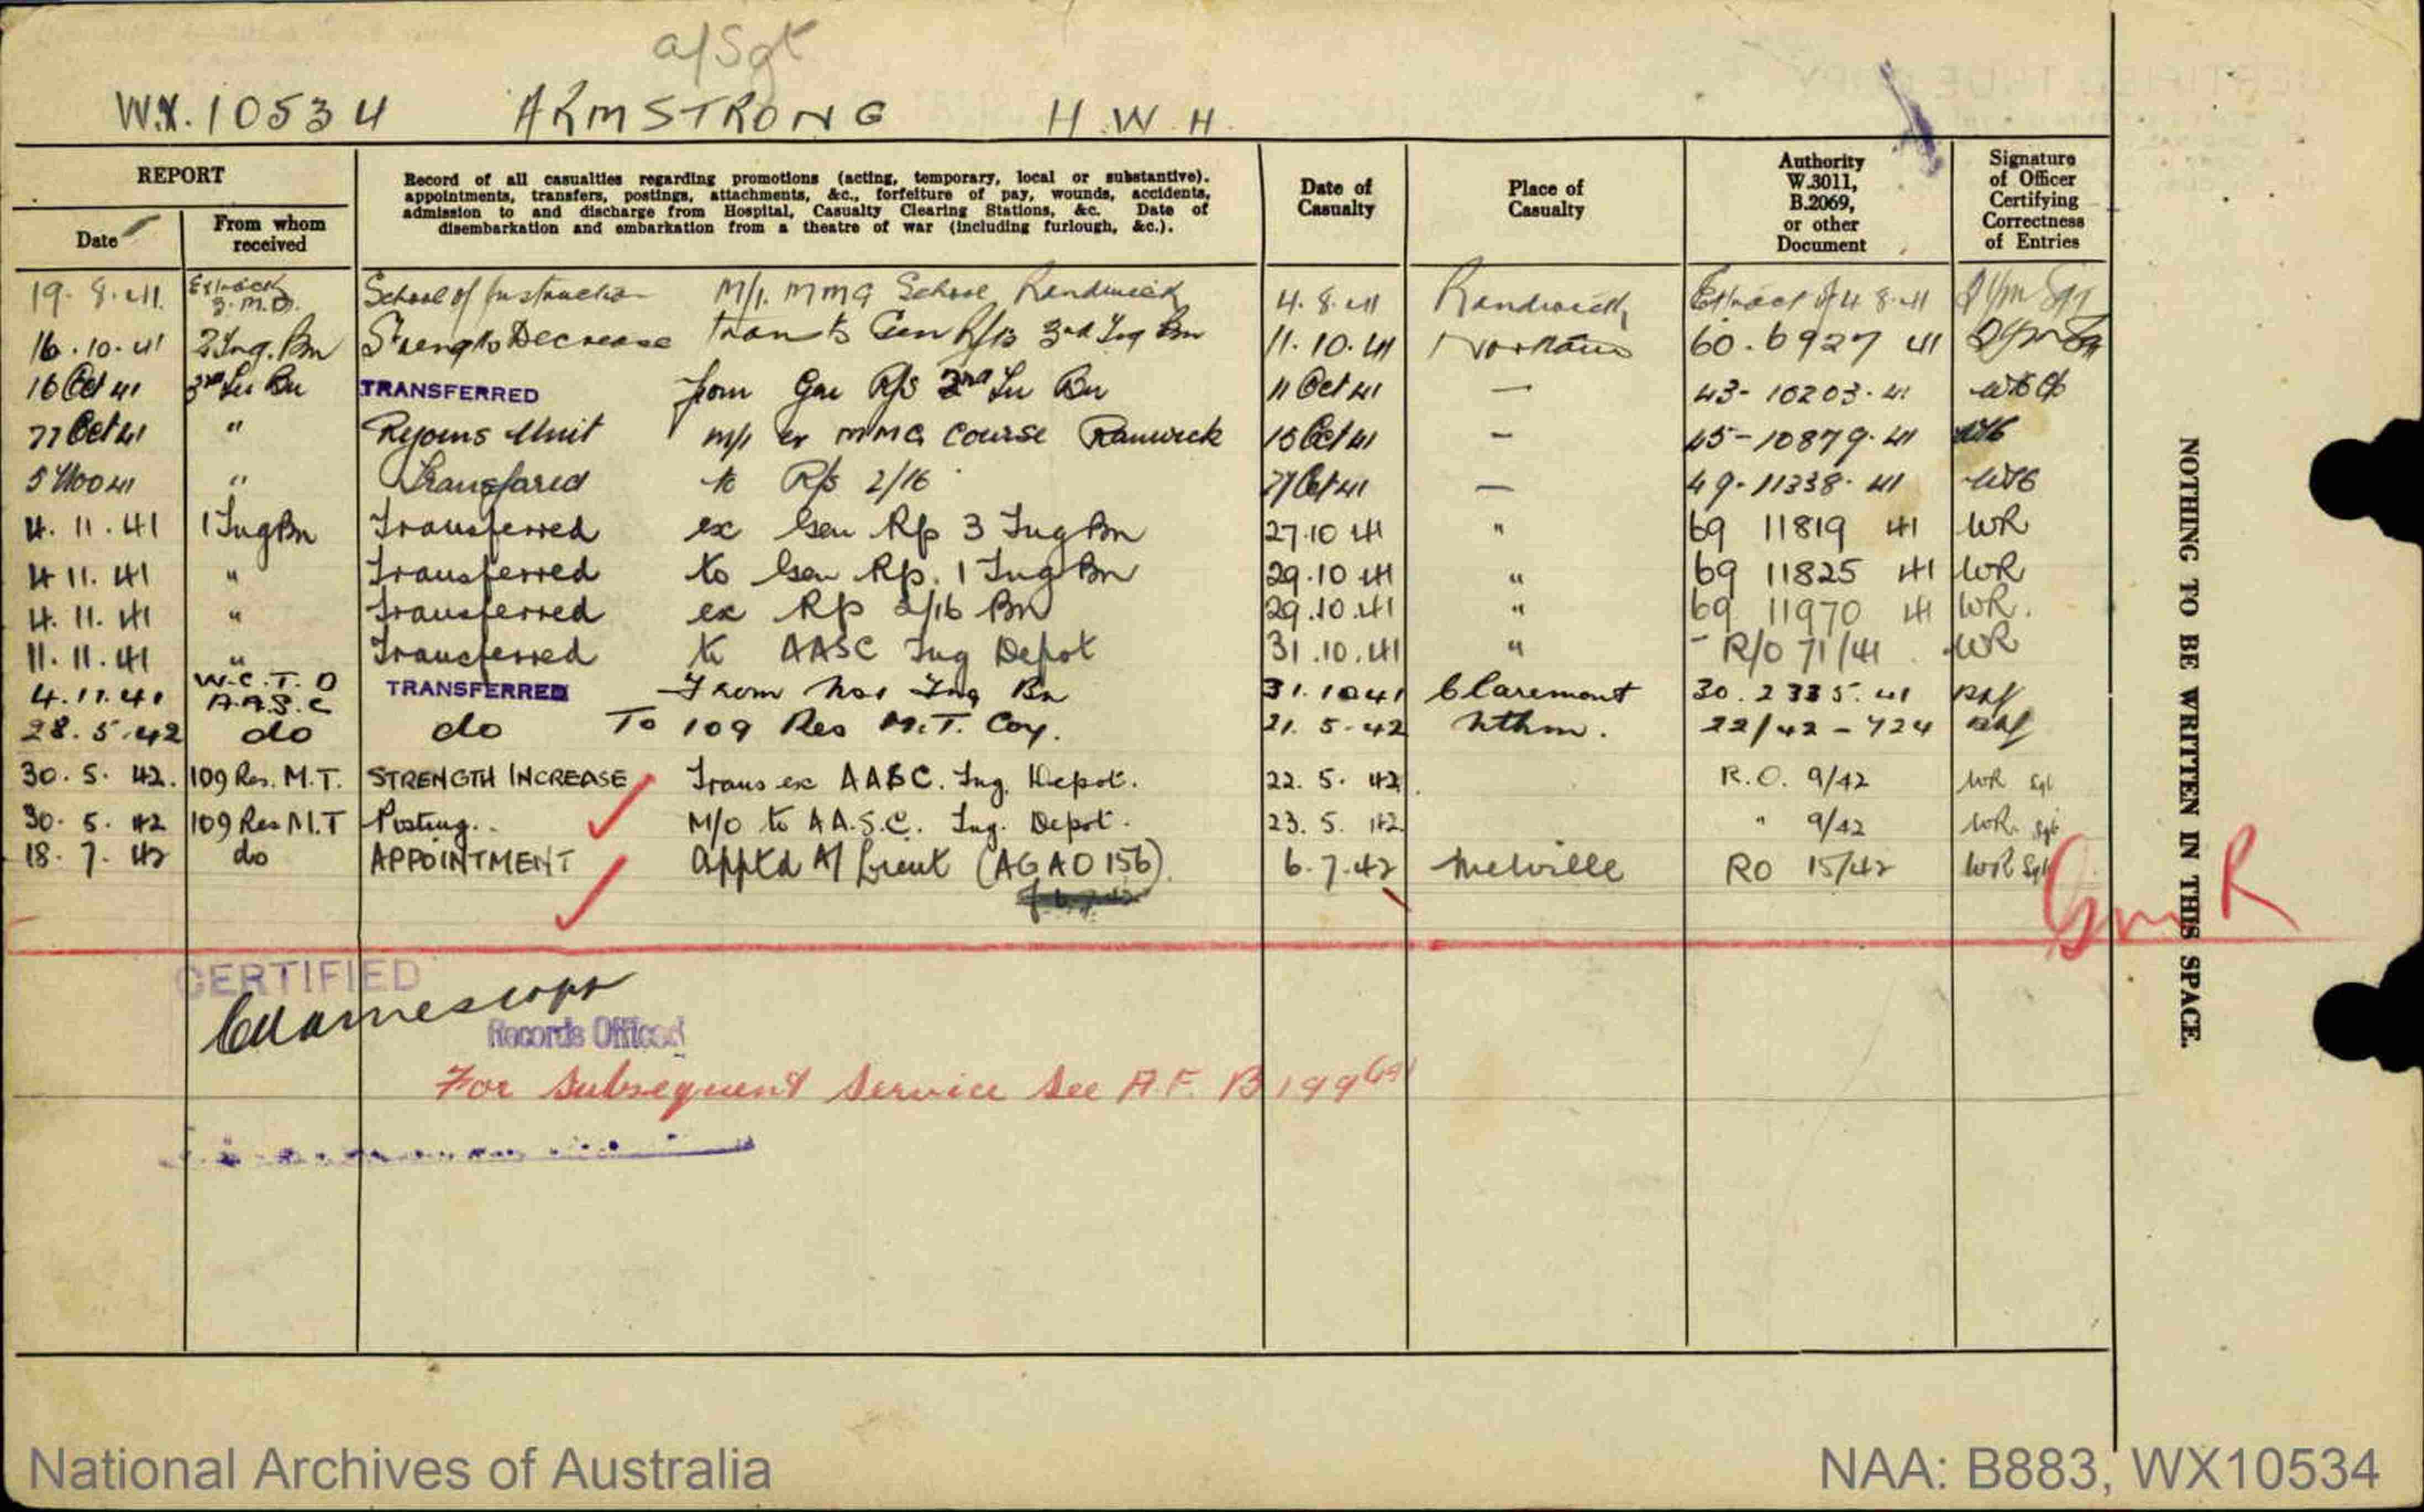 a/Sgt
WX.10534 ARMSTRONG H.W.H.
REPORT
Date
From whom received
Record of all casualties regarding promotions (acting, temporary, local or substantive).
appointments, transfers, postings, attachments, &c., forfeiture of pay, wounds, accidents,
admission to and discharge from Hospital, Casualty Clearing Stations, &c. Date of
disembarkation and embarkation from a theatre of war (including furlough, &c.).
Date of Casualty
Place of Casualty
Authority W.3011, B.2069, or other Document
Signature of Officer Certifying Correctness of Entries
19.8.41. Extract School of Instruction M/I. MMG School Randwick 4.8.41 Randwick Extract 4 8.41
16.10.41 Tng. Bn Strength Decrease trans to Gen R/fs 3rd Tng Bn 11.10.41 Northam 60.6927 41
16 Oct 41 3rd Bn TRANSFERRED from Gen R/fs Bn 11 Oct 41 — 43-10203.41
Oct 41 " Rejoins Unit m/i ex MMG Course Ranwick Oct 41 — 45-10879.41
5 Nov 41 " Transfared to R/fs 2/16 27 Oct 41 — 49-11338.41
4.11.41 1 Tng Bn Transferred ex Gen Rfs 3 Tng Bn 27.10 41 " 69 11819 41 WR
4 11.41 " Transferred to Gen Rfs. 1 Tng Bn 29.10 41 " 69 11825 41 WR
4.11.41 " Transferred ex Rfs 2/16 Bn 29.10.41 " 69 11970 41 WR.
11.11.41 " Transferred to AASC Tng Depot 31.10.41 " - R/O 71/41 WR
4.11.41 W.C.T.D A.A.S.C TRANSFERRED From Tng Bn 31.10 41 Claremont 30.2335.41
28.5.42 do do To 109 Res M.T. Coy. 21.5-42 Nthm. 22/42-724
30.5.42. 109 Res. M.T. STRENGTH INCREASE Trans ex AASC. Tng. Depot. 22.5.42 R.O. 9/42 WR Sgt
30.5.42 109 Res M.T Posting.. M/O to A.A.S.C. Tng. Depot. 23.5.42 " 9/42 WR. Sgt
18.7.42 do APPOINTMENT Apptd A/Lieut (AGAO 156). 6.7.42 Melville RO 15/42 WR Sgt
R
CERTIFIED
Records Officer
For subsequent service see A.F. B199
NOTHING TO BE WRITTEN IN THIS SPACE.
National Archives of Australia
NAA: B883, WX10534